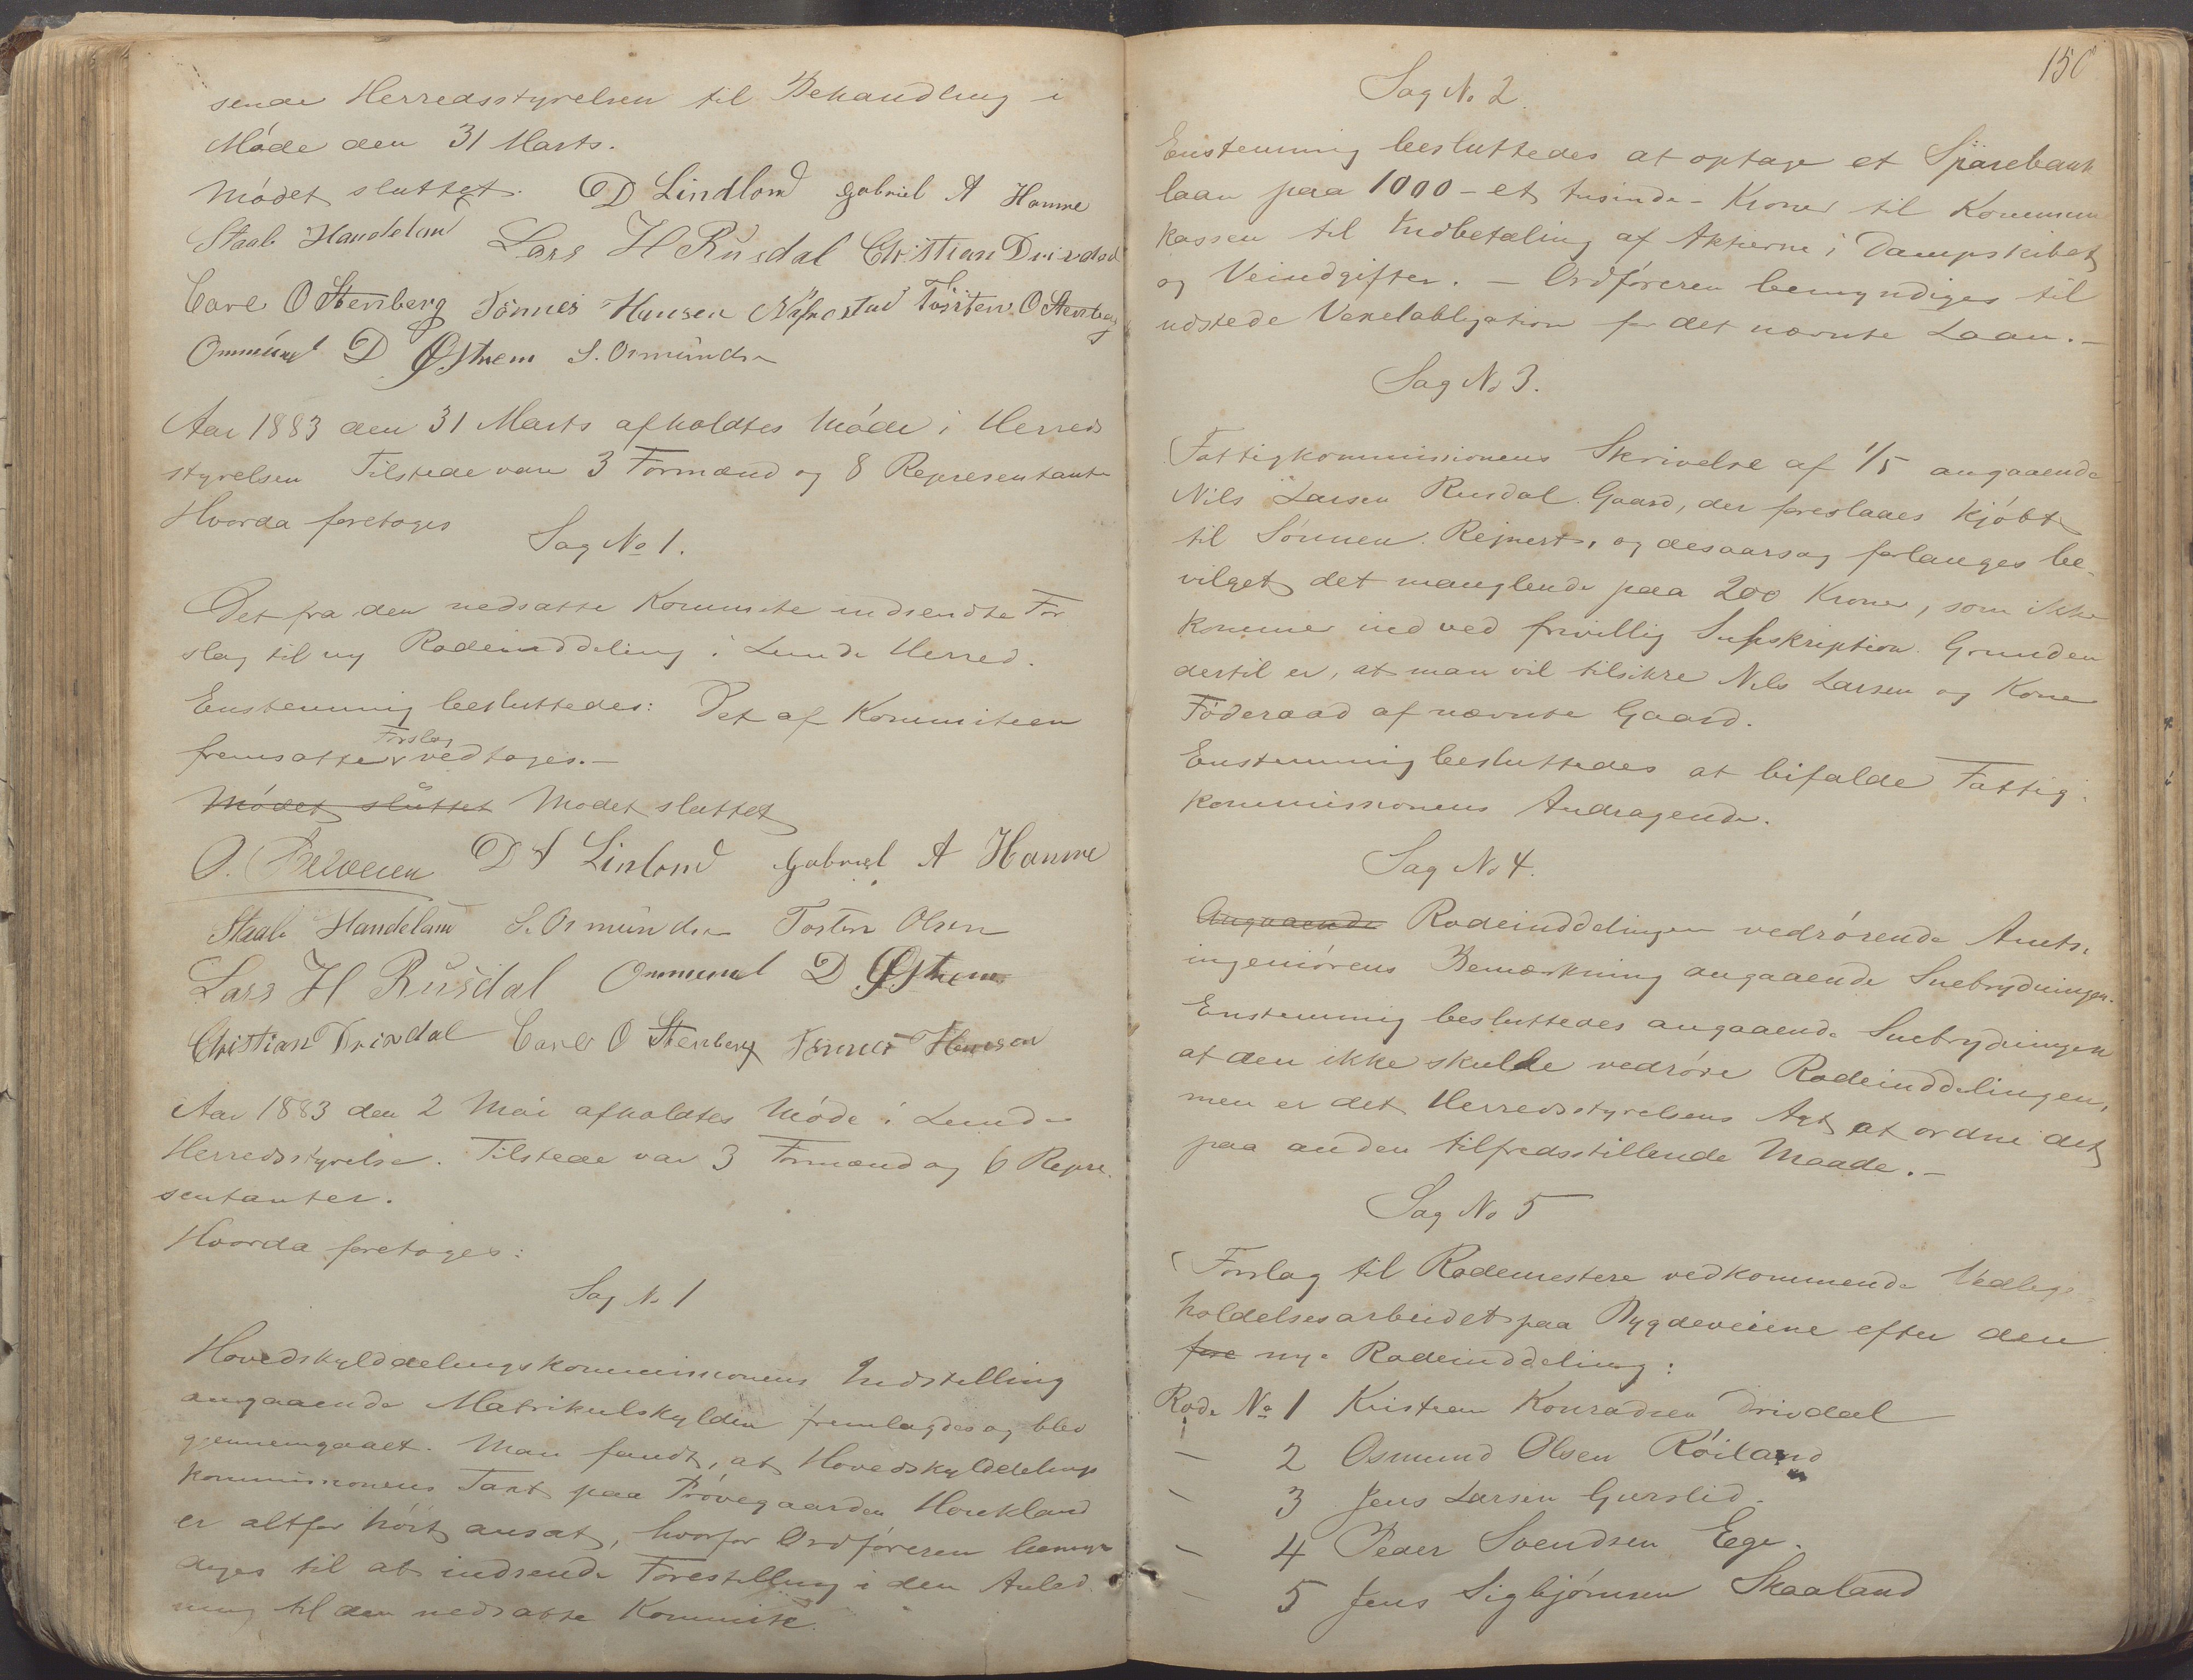 sende Herredsstyrelsen til Behandling i
Møde den 31 Marts.
Mødet sluttet. D Lindland Gabriel A Hamre
Staale Handeland Lars H Rusdal Christian Drivdal
Carl O Stensberg Tønnes Hansen Tosten O Stensberg
Ommund D Østrem S. Osmundsen
Aar 1883 den 31 Marts afholdtes Møde i Herreds
styrelsen Tilstede vare 3 Formænd og 8 Representanter
Hvorda foretoges
Sag No 1.
Det fra den nedsatte Kommite indsendte For
slag til ny Rodeinddeling i Lunde Herred.
Enstemmig besluttedes: Det af Kommiteen
fremsatte Forslag vedtages.-
Mødet sluttet Mødet sluttet
O. D Lindland Gabriel A Hamre
Staale Handeland S. Osmundsen Tosten Olsen
Lars H Rusdal Ommund D Østrem
Christian Drivdal Carl O Stensberg Tønnes Hansen
Aar 1883 den 2 Mai afholdtes Møde i Lunde
Herredsstyrelse. Tilstede var 3 Formænd og 6 Repre
sentanter.
Hvorda foretoges:
Sag No 1
Hovedskylddelingskommissionens Indstilling
angaaende Matrikulskylden fremlagdes og blev
gjennemgaaet. Man fandt, at Hovedskylddelings
kommissionens Taxt paa Prøvegaarden Houkland
er altfor høit ansat, hvorfor Ordføreren bemyn
diges til at indsende Forestilling i den Anled
ning til den nedsatte Kommite.
150
Sag No 2.
Enstemmig besluttedes at optage et Sparebank
laan paa 1000 - et tusinde - Kroner til Kommune
kassen til Indbetaling af Aktierne i Dampskibet
og Veiudgifter. - Ordføreren bemyndiges til
udstede Vexelobligation for det nævnte Laan.-
Sag No 3.
Fattigkommissionens Skrivelse af 1/5 angaaende
Nils Larsen Rusdal Gaard, der foreslaaes kjøbt
til Sønnen Rejnert, og desaarsag forlanges be-
vilget det manglende paa 200 Kroner, som ikke
kommer ind ved frivillig Supskription. Grunden
dertil er, at man vil tilsikre Nils Larsen og Kone
Føderaad af nævnte Gaard.
Enstemmig besluttedes at bifalde Fattig
kommissionens Andragende.
Sag No 4.
Angaaende Rodeinddelingen vedrørende Amts-
ingeniørens Bemærkning angaaende Snebrydningen.
Enstemmig besluttedes angaaende Snebrydningen
at den ikke skulde vedrøre Rodeinddelingen,
men er det Herredsstyrelsens Agt at ordne det
paa anden tilfredsstillende Maade.-
Sag No 5
Forslag til Rodemestere vedkommende Vedlige-
holdelsesarbeidet paa Bygdeveiene efter den
fore nye Rodeinddeling:
Rode No 1 Kristian Konradsen Drivdal
- 2 Osmund Olsen Røiland
- 3 Jens Larsen Gurslid.
- 4 Peder Svendsen Ege.
- 5 Jens Sigbjørnsen Skaaland